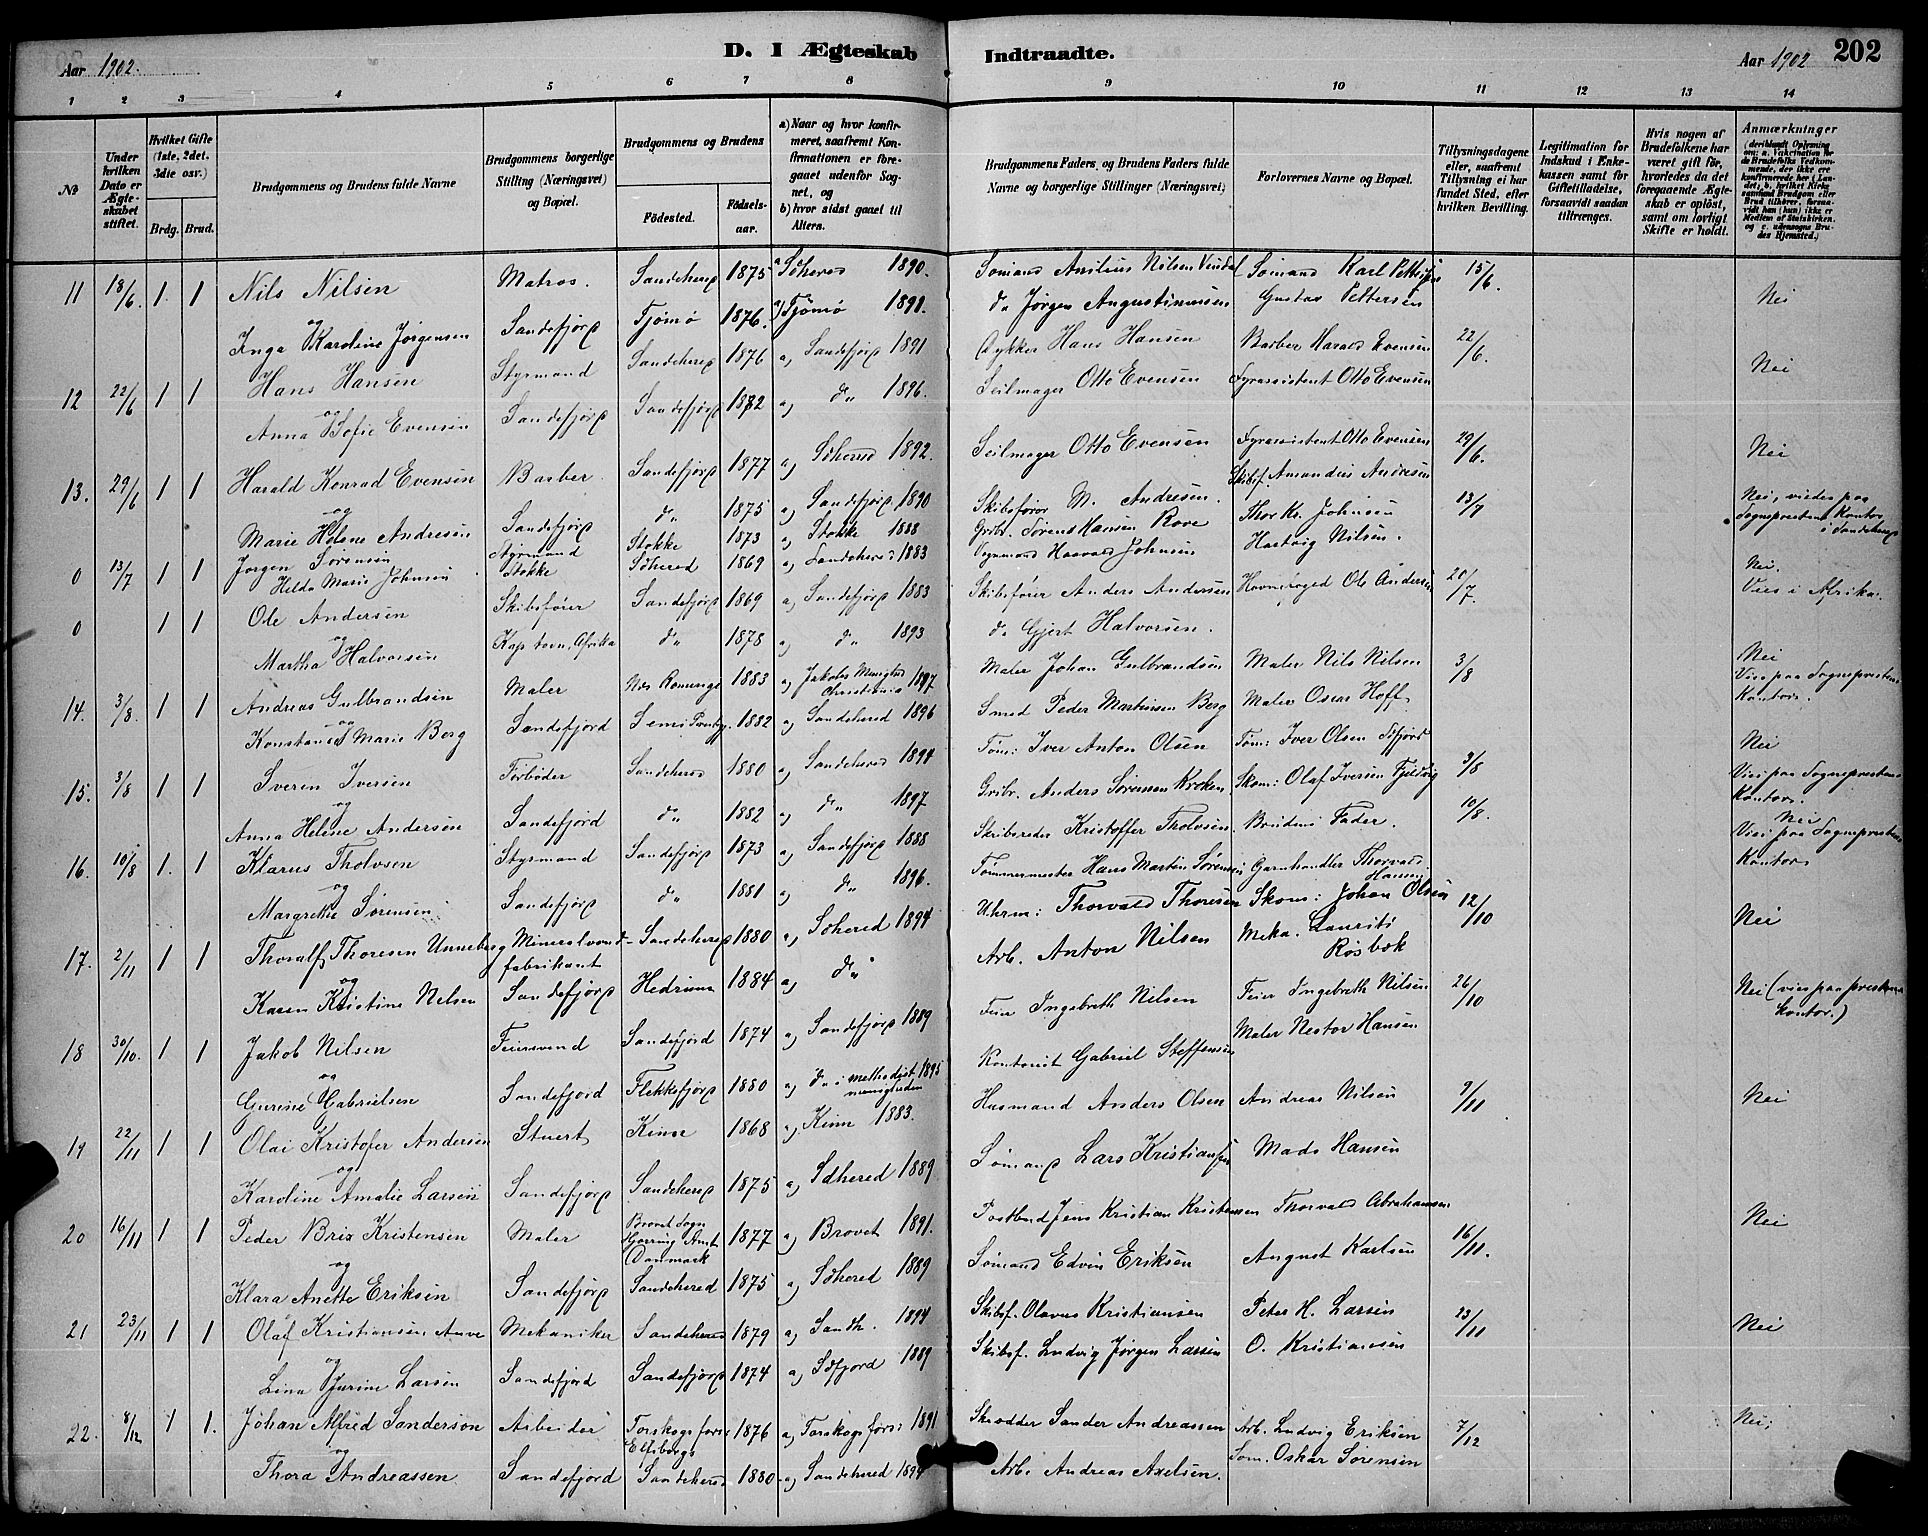 D. I Ægteskab Indtraadte.
202
Aar 1902.
Aar 1902
1 2 3 4 5 6 7 8 9 10 11 12 13 14
№
Under hvilken Dato er Ægteskabet stiftet.
Hvilket Gifte (1ste, 2det, 3die osv.)
Brdg. Brud.
Brudgommens og Brudens fulde Navne
Brudgommens borgerlige Stilling (Næringsvei) og Bopæl.
Brudgommens og Brudens
Födested. Födselsaar.
a) Naar og hvor konfirmeret, saafremt Konfirmationen er foregaaet udenfor Sognet, og
b) hvor sidst gaaet til Alters.
Brudgommens Faders og Brudens Faders fulde Navne og borgerlige Stillinger (Næringsvei)
Forlovernes Navne og Bopæl.
Tillysningsdagene eller, saafremt Tillysning ei har fundet Sted, efter hvilken Bevilling.
Legitimation for Indskud i Enkekassen samt for Giftetilladelse, forsaavidt saadan tiltrænges.
Hvis nogen af Brudefolkene har været gift för, hvorledes da det foregaaende Ægteskab er oplöst, samt om lovligt Skifte er holdt.
Anmærkninger (deriblandt Oplysning om: a. Vakcination for de Brudefolks Vedkommende, der ikke ere konfirmerede her i Landet; b. hvilket Kirkesamfund Brudgom eller Brud tilhörer, forsaavidt han (hun) ikke er Medlem af Statskirken. og c. udensogns Brudes Hjemsted.)
11 18/6. 1. 1 Nils Nilsen Matros. Sandeherred 1875 a Sdherred 1890. Sømand Anilius Nilsen Vindal Sømand Karl Pettersen 15/6. Nei
og
Inga Karoline Jørgensen Sandefjord Tjømø 1876. Tjømø 1891. do Jørgen Augustinussen Gustav Pettersen
12 22/6 1 1 Hans Hansen Styrmand Sandeherred 1876 a) Sandefjord 1891 Dykker Hans Hansen Barber Harald Evensen 22/6. Nei
og
Anna Sofie Evensen Sandefjord Sandefjord 1882 a) do 1896. Seilmager Otto Evensen Fyrassistent Otto Evensen
13. 29/6 1 1 Harald Konrad Evensen Barber Sandefjord 1877 a) Sdherred 1892. Seilmager Otto Evensen Fyrassistent Otto Evensen 29/6. Nei
og
Marie Helene Andresen Sandefjord do 1875 a) Sandefjord 1890 Skibsfører M. Andresen. Skibsf. Amandus Andresen
0 13/7 1 1 Jørgen Sørensen Styrmand Stokke 1873 a) Stokke 1888 Grdbr. Sørens Hansen Rove Thor Kr. Johnsen 13/7 Nei, viedes paa Sognepræstens Kontor i Sandeherred
Helda Marie Johnsen Stokke Sdherred 1869 a) Sandeherred 1883 Haavald Johnsen Hartvig Nilsen.
0 1 1 Ole Andersen Skibsfører Sandefjord 1869 a) Sandefjord 1883 Skibsfører Anders Andersen Havnefoged Ole Andersen 20/7. Nei. Vies i Afrika.
og
Martha Halvorsen Kapstaden, Afrika do 1878 a) do 1893 do Gjert Halvorsen.
14. 3/8. 1 1 Andreas Gulbrandsen Maler Næs Romerige 1883 a) Jakobs Menighed Christiania 1897 Maler Johan Gulbrandsen Maler Nils Nilsen 3/8 Nei Vies paa Sognepræstens Kontor.
og
Konstance Marie Berg Sandefjord Sem 1882 a) Sandeherred 1896 Smed Peder Martinsen Berg Maler Oscar Hoff
15. 3/8 1 1 Sveren Iversen Førbøder Sandeherred 1880 a) Sandeherred 1894 Tøm: Iver Anton Olsen Tøm: Iver Olsen Sfjord 3/8 Nei Vies paa Sognepræstens Kontor.
og
Anna Helene Andersen Sandefjord do 1882 a) do 1897 Grdbr. Anders Sørensen Kroken Skom: Olaf Iversen Fjeldvig
16. 10/8 1. 1 Klarus Tholvsen Styrmand Sandefjord 1873 a) Sandefjord 1888 Skibsreder Kristoffer Tholvsen. Brudens Fader. 10/8. Nei Vies paa Sognepræstens Kontor
og
Margrethe Sørensen Sandefjord do 1881 a) do 1896. Tømmermester Hans Martin Sørensen Garnhandler Thorvald Hansen
17. 2/11 1 1 Thoralf Thoresen Unneberg Mineralvandfabrikant Sandeherred 1880 a) Sdherred 1894 Uhrm: Thorvald Thoresen Skom: Johan Olsen 12/10 Nei
og
Karen Kristine Nelsen Sandefjord Hedrum 1884 a) do Arb. Anton Nilsen Meka. Laurits Røsbok
18 30/10. 1 1 Jakob Nilsen Feiersvend Sandefjord 1874 a) Sandefjord 1889 Feier Ingebreth Nilsen Feier Ingebreth Nilsen 26/10 Nei (vies paa præstens kontor.)
og
Gurine Gabrielsen Sandefjord Flekkefjord 1880 a) do i methodistmenigheden 1895 Kontorist Gabriel Steffensen Maler Nestor Hansen
19 22/11 1 1 Olai Kristofer Andersen Stuert Kinn 1868 a) Kinn 1883. Husmand Anders Olsen Andreas Nilsen 9/11 Nei
og
Karoline Amalie Larsen Sandefjord Sandeherred 1875 a) Sdherred 1889 Sømand Lars Kristiansen Mads Hansen
20 16/11 1 1 Peder Brix Kristensen Maler Brovst Sogn Hjørring Amt Danmark 1877 a) Brovst 1891. Postbud Jens Kristian Kristensen Thorvald Abrahamsen 16/11. Nei
og
Klara Anette Eriksen Sandefjord Sandeherred 1875 a) Sdherred 1889 Sømand Edvin Eriksen August Karlsen
21 23/11 1 1 Olaf Kristiansen Auve Mekaniker Sandeherred 1879 a) Sandh. 1894 Skibsf. Olavus Kristiansen Peter H. Larsen 23/11 Nei
og
Lina Jurine Larsen Sandefjord Sandefjord 1874 a) Sdfjord 1889 Skibsf. Ludvig Jørgen Larsen O. Kristiansen
22. 8/12 1 1. Johan Alfred Sanderson Arbeider Torskogs fors: Elfsborgs 1876 a) Torskogs fors: 1891 Skrædder Sander Andreassen Arb. Ludvig Eriksen 7/12 Nei;
og
Thora Andreassen Sandefjord Sandeherred 1880 a) Sandeherred 1894 Arb. Andreas Axelsen. Tøm. Oskar Sørensen